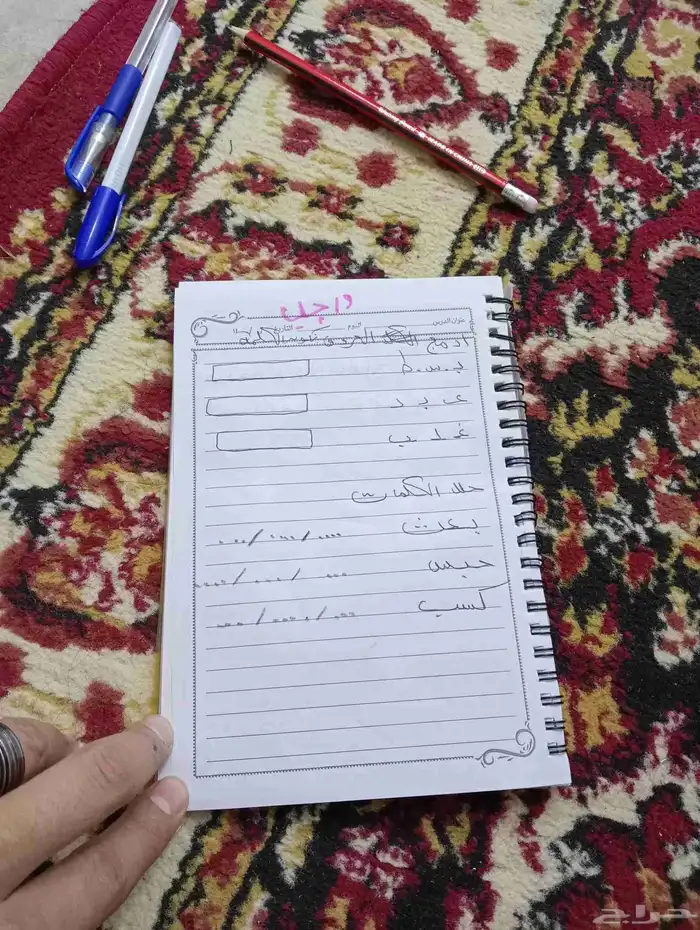 واجب
عنوان الدرس اليوم التاريخ
ادمج الحروف لتكوين الكلمة
ب س ط
ع ب د
غ ل ب
حلل الكلمات
بعث .../.../...
حبس .../.../...
كسب .../.../...
حراج